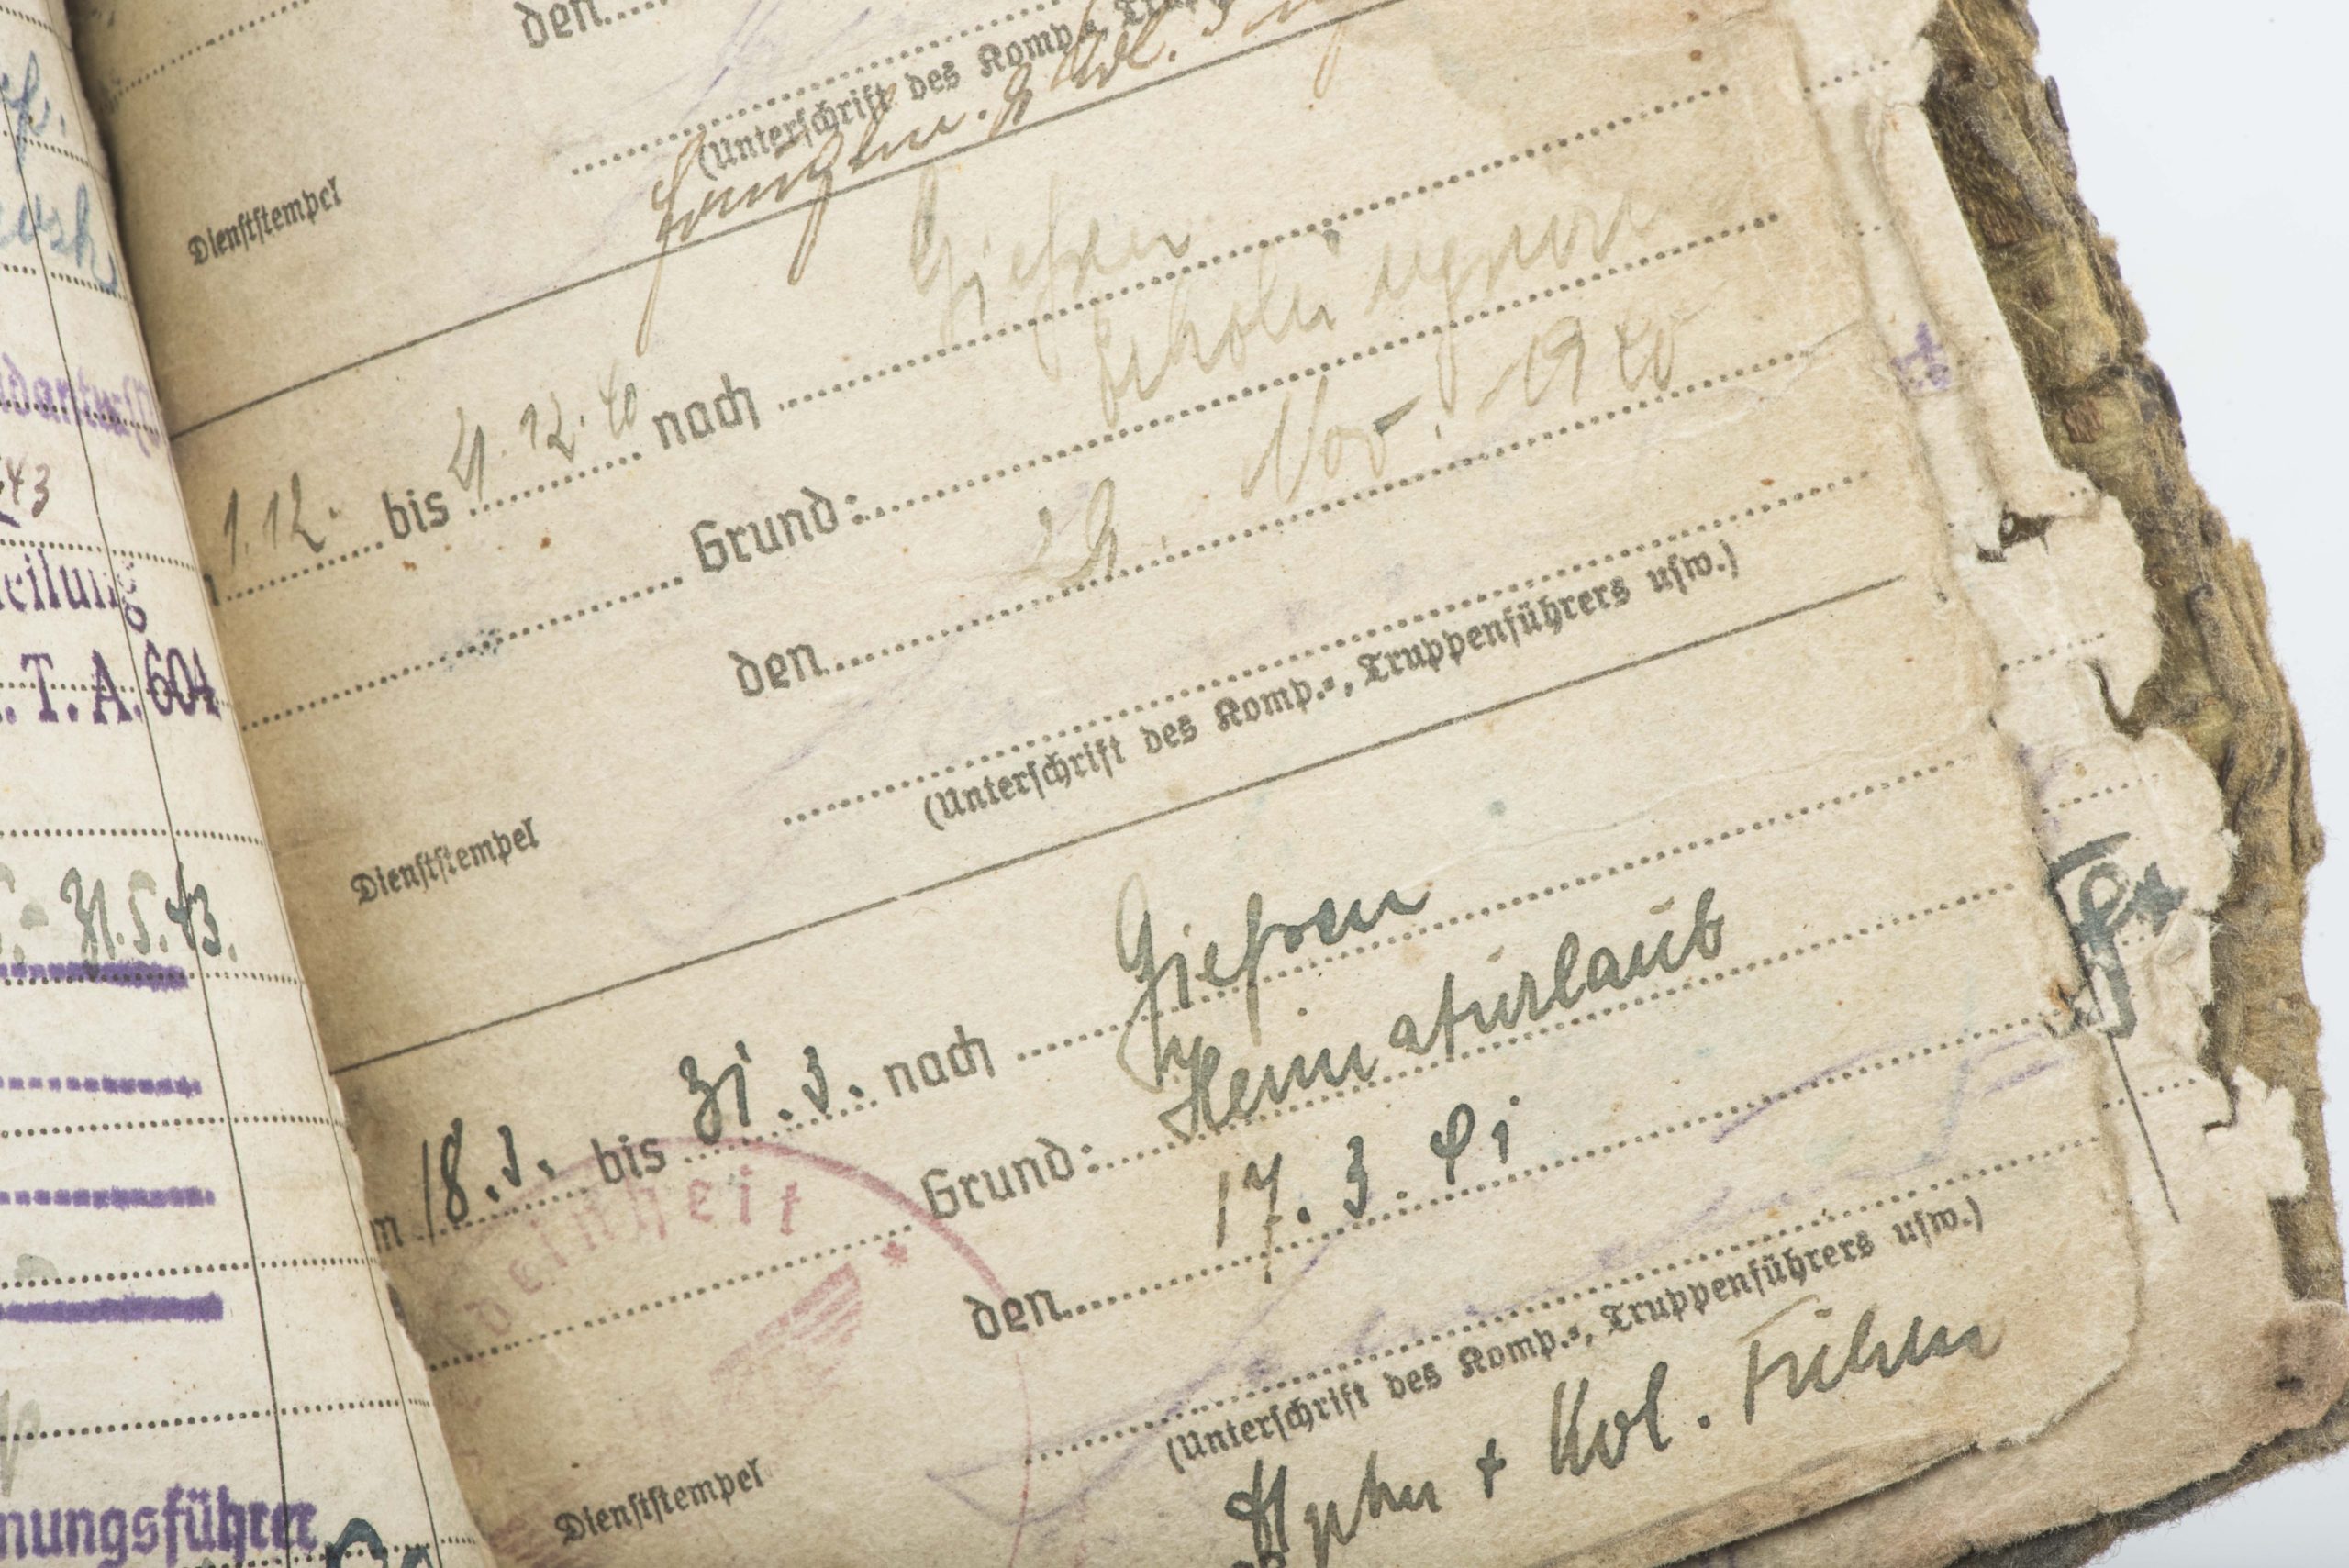 den
(Unterschrift des Komp.-, Trupp
Dienststempel
1.12. bis 4.12.40 nach Gießen
Grund:
den 29. Nov. 1940
(Unterschrift des Komp.-, Truppenführers usw.)
Dienststempel
m 18.3. bis 31.3. nach Gießen
Grund: Heimaturlaub
den 17.3.41
(Unterschrift des Komp.-, Truppenführers usw.)
Dienststempel
einheit
u. Kol. Führer
43
eilung
.T.A.604
31.5.43.
nungsführer